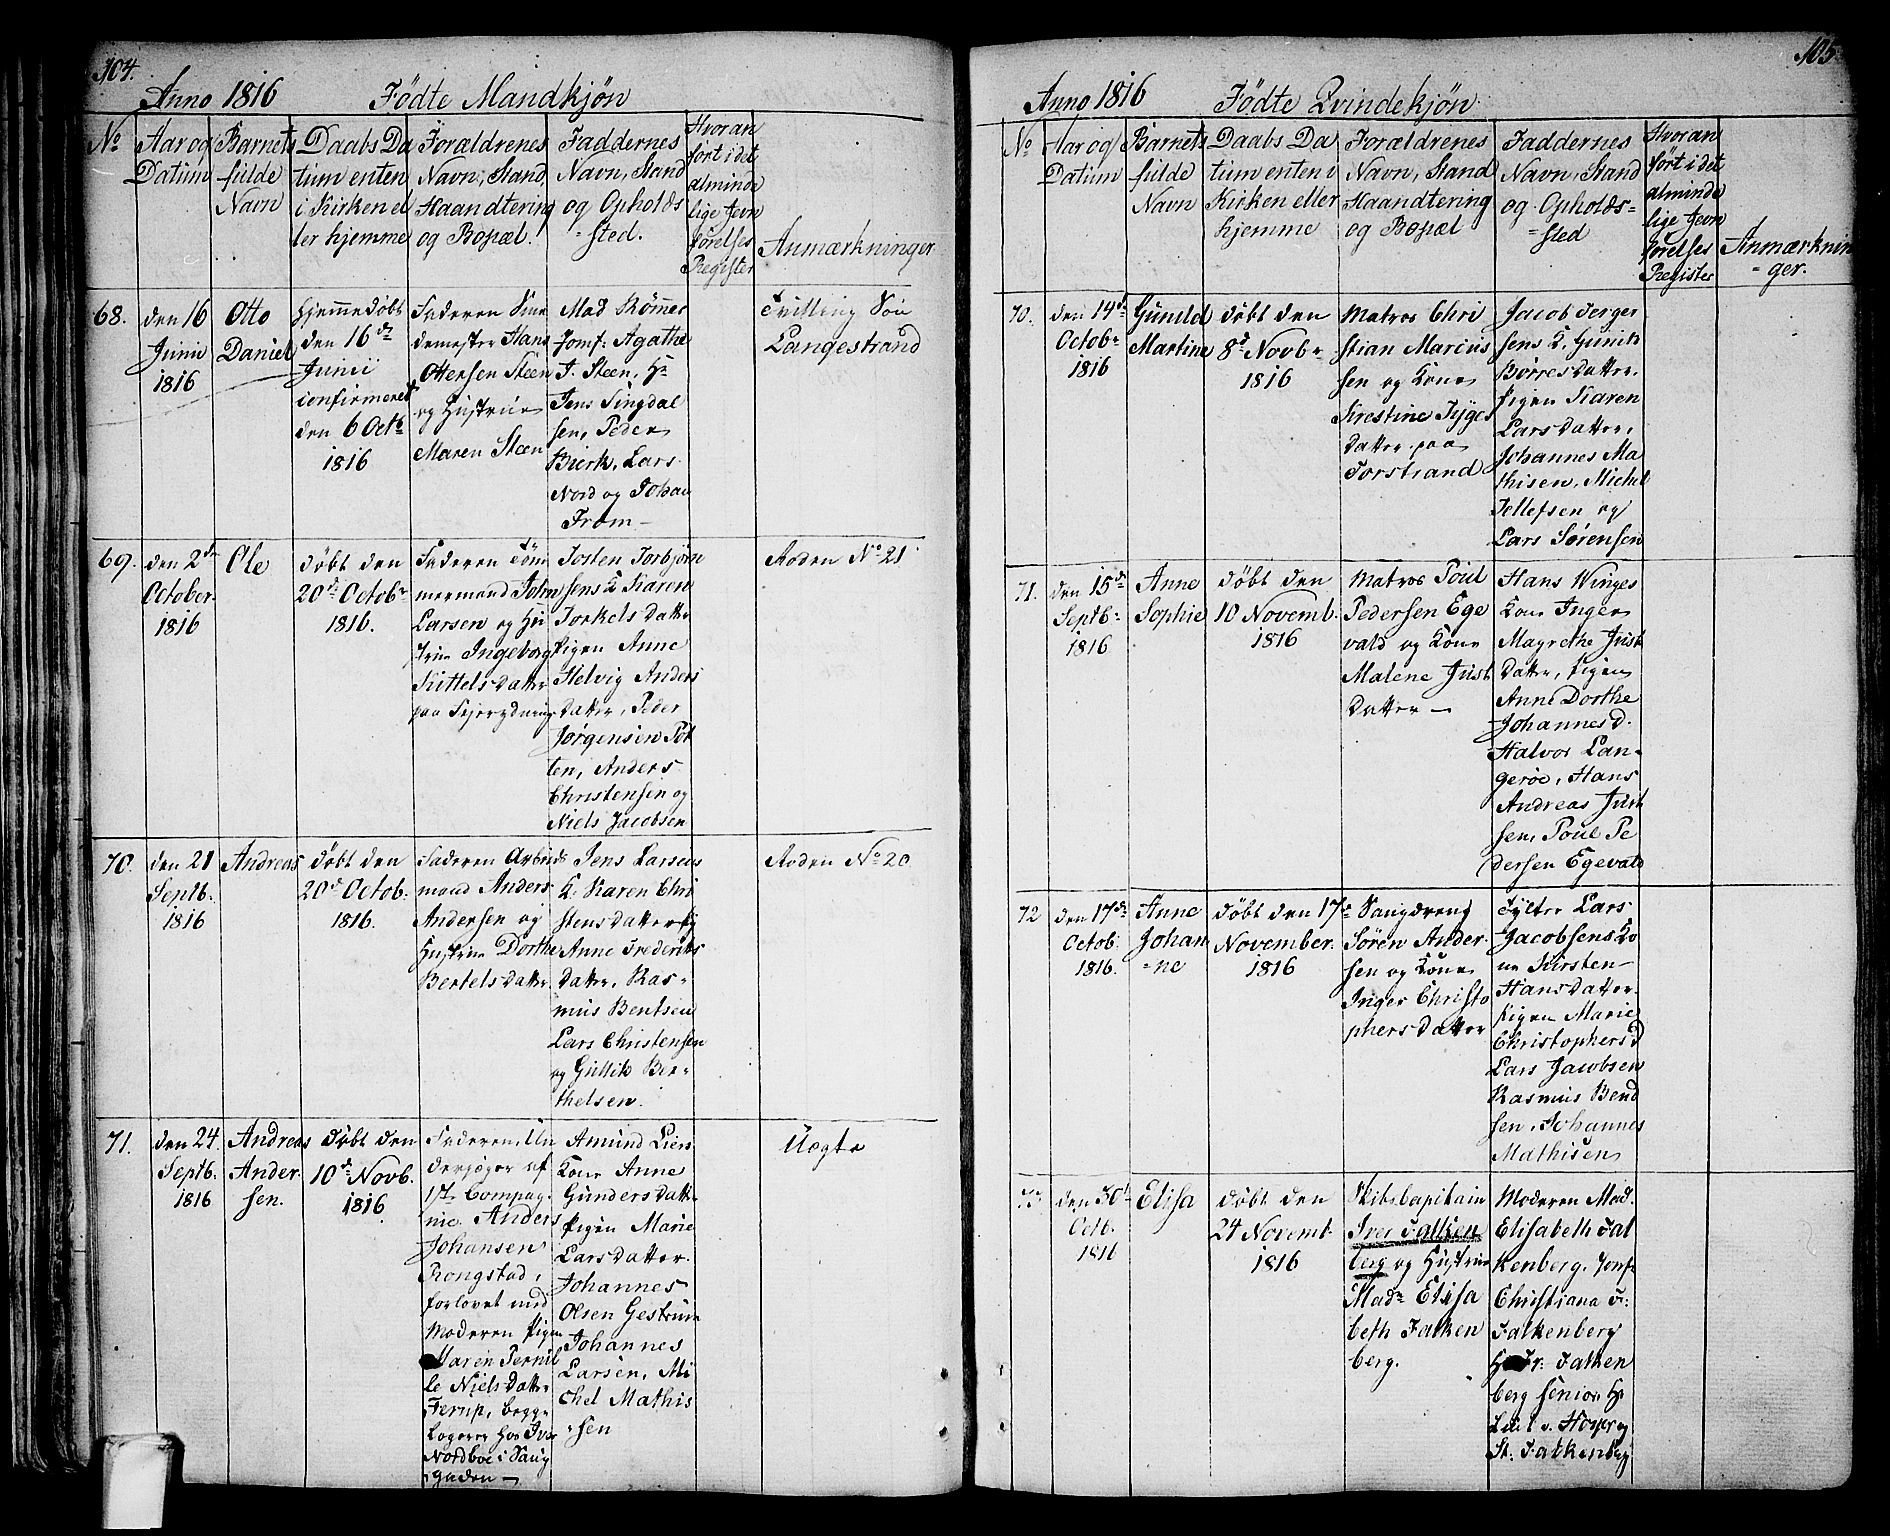 104.
Anno 1816 Fødte Mandkjøn
No
Aar og
Datum
Barnets
fulde
Navn
Daabs Da
tum enten
i Kirken el
ler hjemme
Forældrenes
Navn, Stand,
Haandtering
og Bopæl.
Faddernes
Navn, Stand
og Opholds
=sted.
Hvor an
ført i det
alminde
lige Jevn
førelses
Register
Anmærkninger
68.
den 16
Junii
1816
Otto
Daniel
hjemmedøbt
den 16de
Junii
confirmeret
den 6 Octb
1816
Faderen
demester Hans
Ottersen Steen
og Hustrue
Maren Steen
Mad Rømer
Jomf: Agathe
J. Steen, Hr
Jens Singdal
sen, Peder
Bierk, Lars
Nord og Johan
From—
Tvilling Søn
Langestrand
69.
den 2den
October.
1816
Ole
døbt den
20de Octobr
1816.
Faderen Töm
mermand John
Larsen og Hu
strue Ingeborg
Kittelsdatter
paa
Josten Torbjørn
sens K Karen
Torkelsdatter
Pigen Anne
Helvig Anders
datter, Peder
Jørgensen Pot
ten, Anders
Christensen og
Niels Jacobsen
Anden No 21
70.
den 21
Septb.
1816
Andreas
døbt den
20de Octob.
1816.
Faderen Arbeids
mand Anders
Andersen og
Hustrue Dorthe
Bertelsdatter
Jens Larsens
K. Karen Chri
stensdatter Pig
Anne Frederiks
datter, Ras=
mus Bentsen
Lars Christensen
og Gullik Ber=
thelsen.
Anden No 20
71.
den 24.
Septb.
1816
Andreas
Ander
sen.
døbt den
10de Novb.
1816
Faderen, Un
derjæger af
1ste Compag
nie. Anders
Johansen
Rongstad,
forlovet med
Moderen Pigen
Maren Pernil
le Nielsdatter
Ferup, begge
Logerer hos Iver
Nordboe i Laug
gaden—
Amund Lien
Kone Anne
Gundersdatter
Pigen Marie
Larsdatter.
Johannes
Olsen Gestrum
Johannes
Larsen, Mi
chel Mathis
=sen
Uægte
105.
Anno 1816 Fødte Qvindekjøn
No
Aar og
Datum
Barnets
fulde
Navn
Daabs Da
tum enten i
Kirken eller
hjemme
Forældrenes
Navn, Stand
Haandtering
og Bopæl
Faddernes
Navn, Stand
og Opholds=
=sted
Hvor an
ført i det
alminde
lige Jevn
førelses
Register
Anmærknin
=ger.
70.
den 14de
Octobr
1816
Gunild
Martine
døbt den
8de Novbr
1816
Matros Chri
stian Marcus
sen og Kone
Kirestine Tyges
datter paa
Torstrand
Jacob Jerger
sens K. Gunild
Børresdatter.
Pigen Karen
Larsdatter,
Johannes Ma
thisen, Michel
Tellefsen og
Lars Sørensen
71.
den 15de
Septb.
1816
Anne
Sophie
døbt den
10 Novemb.
1816
Matros Poul
Pedersen Ege
vald og Kone
Malene Just
datter—
Hans Winges
Kone Inger
Magrethe Just
datter, Pigen
Anne Dorthe
Johannesd.
Halvor Lan=
gerøe, Hans
Andreas Just
sen, Poul Pe
dersen Egevald
72
den 17de
Octob.
1816.
Anne
Johan
=ne
døbt den 17de
November.
1816
Vaugdreng
Søren Ander
sen og Kone
Inger Christo
phersdatter
Fylter Lars
Jacobsens Ko
ne Kirsten
Hansdatter.
Pigen Marie
Christophersd
Lars Jacobsen
Rasmus Bend
sen, Johannes
Mathisen
73
den 30te
Octb.
1816
Elisa
døbt den
24 Novemb.
1816
Skibs Capitain
Iver Falken
berg og Hustrue
Madme Elisa
beth Falken
berg.
Moderen Mad.
Elisabeth Fal
kenberg. Jomf.
Christiana F:
Falkenberg
Hr Fr: Falken
berg senior, Hr
Lieut v. og
St. Falkenberg